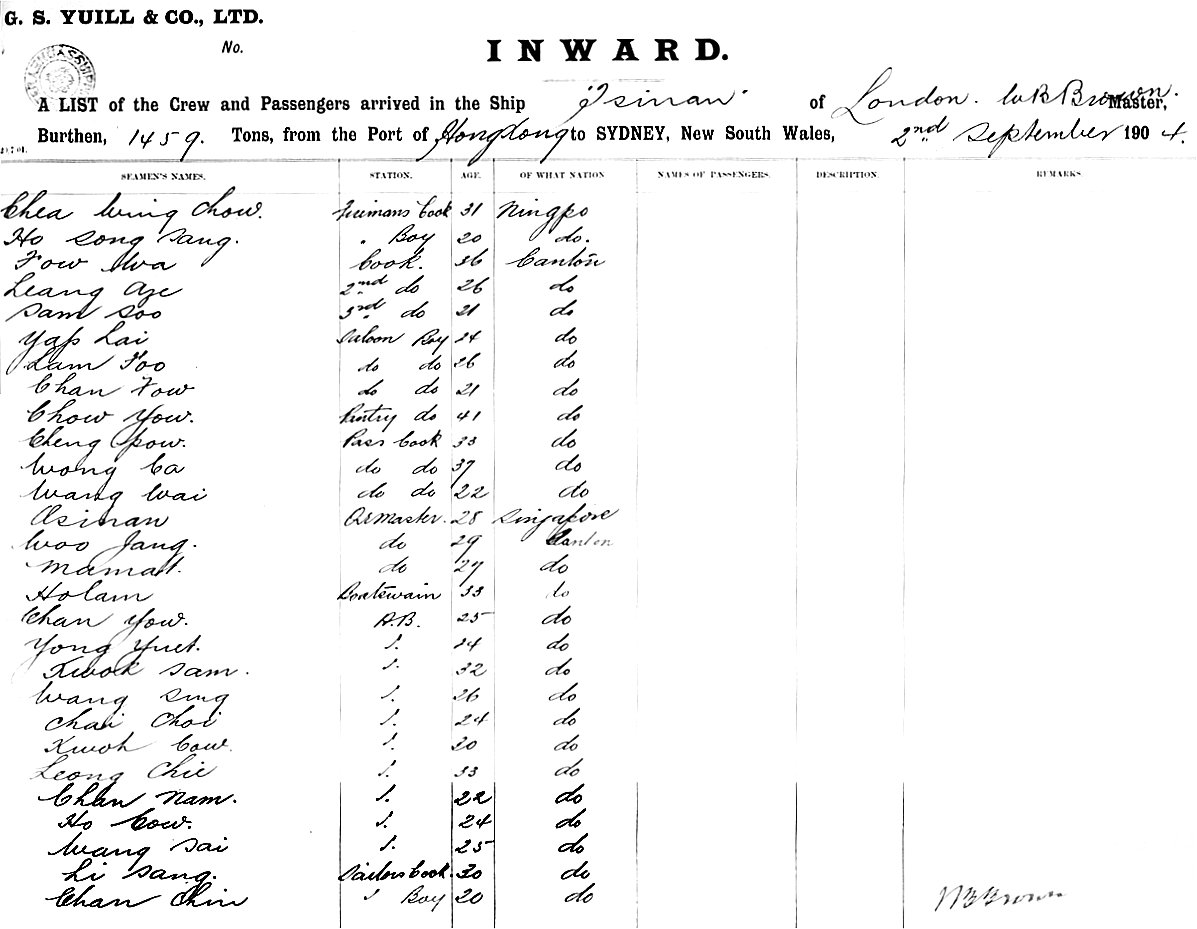 G. S. YUILL & CO., LTD.
No.
INWARD.
A LIST of the Crew and Passengers arrived in the Ship "Tsinan" of London. W B Brown. Master,
Burthen, 1459. Tons, from the Port of Hong Kong to SYDNEY, New South Wales, 2nd September 1904.
SEAMEN'S NAMES. STATION. AGE. OF WHAT NATION NAMES OF PASSENGERS. DESCRIPTION. REMARKS.
Chea Wing Chow. Firemans Cook 31 Ningpo
Ho Song Sang. " Boy 20 do.
Fow Wa Cook. 36 Canton
Leang Aze 2nd do 26 do
Sam Soo 3rd do 21 do
Yap Lai Saloon Boy 24 do
Lam Foo do do 26 do
Chan Fow do do 21 do
Chow You. Pantry do 41 do
Cheng Pow. Pass Cook 33 do
Wong Ca do do 37 do
Wang Wai do do 22 do
Osinan Qrmaster. 28 Singapore
Woo Jang. do 29 Canton
Mamat. do 27 do
Holam Boatswain 33 do
Chan You. A.B. 25 do
Yong Yuet. 24 do
Kwok Sam. 32 do
Wang Sing 26 do
Chai Choi 24 do
Kwok Cow. 30 do
Leong Chie 33 do
Chan Nam. 22 do
Ho Cow. 24 do
Wang Sai 25 do
Li Sang. Sailors Cook. 30 do
Chan Chin Boy 20 do
W B Brown